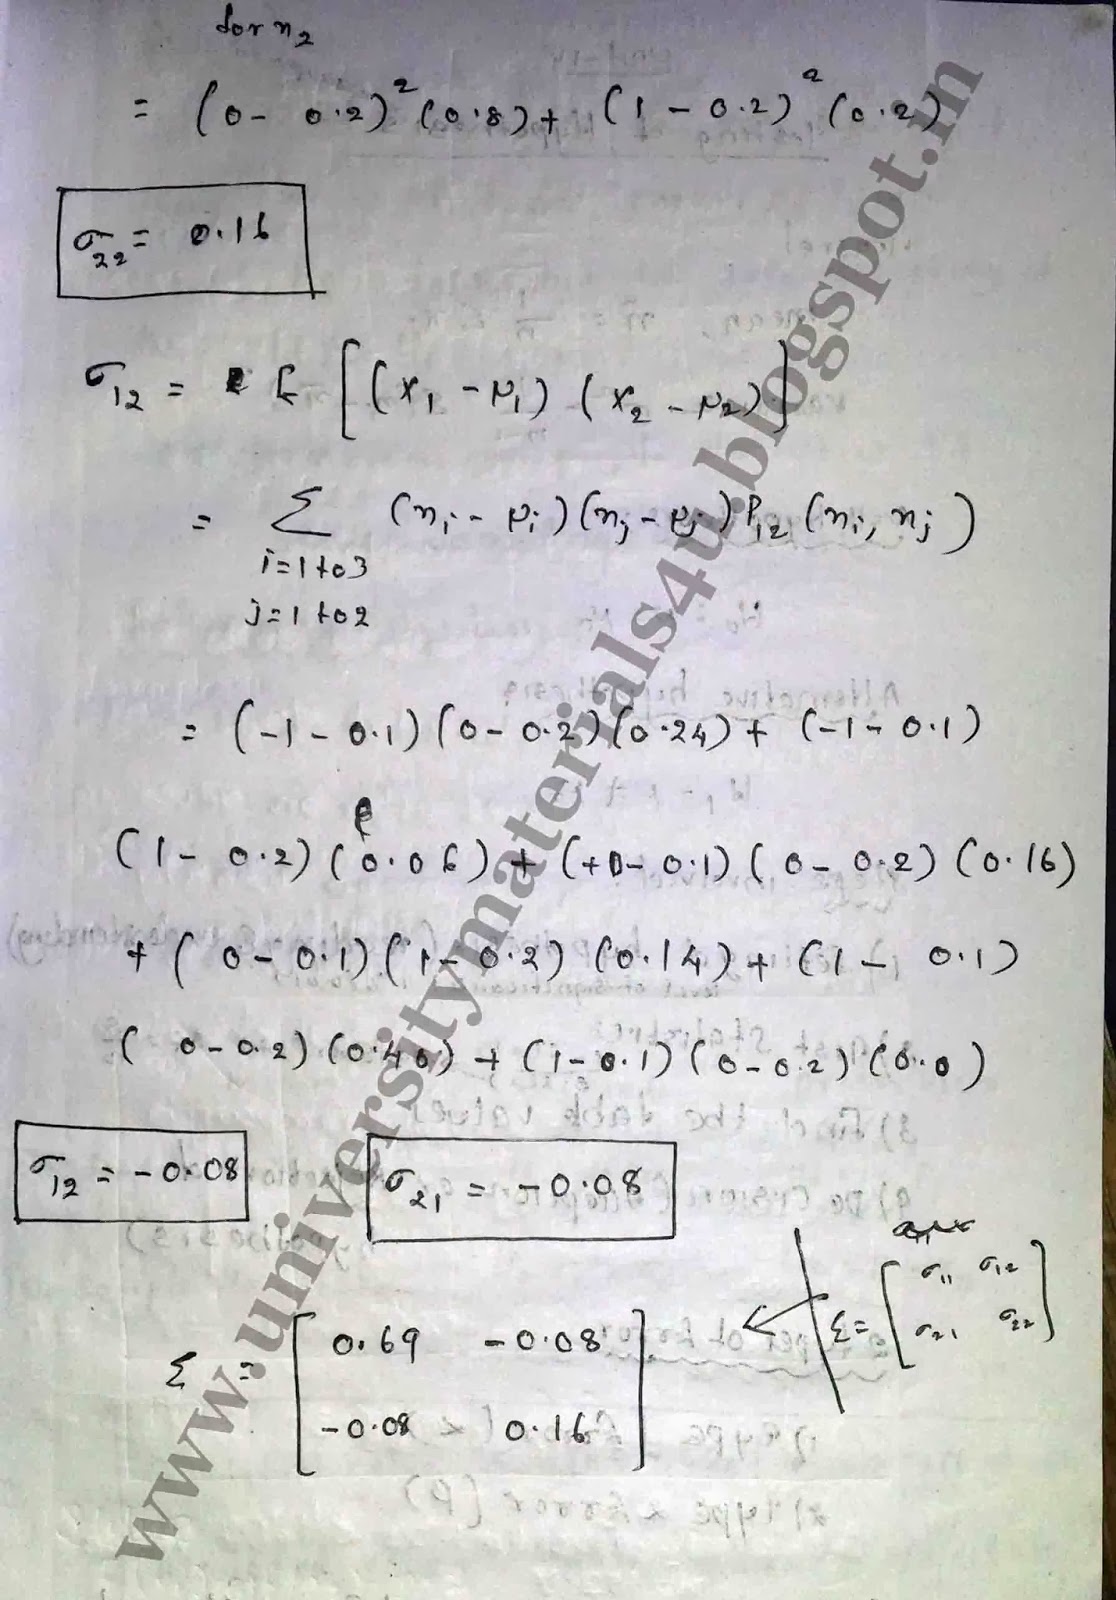 for x2
= (0 - 0.2)² (0.8) + (1 - 0.2)² (0.2)
σ22 = 0.16
σ12 = E [(x1 - μ1) (x2 - μ2)]
= Σ (xi - μi) (xj - μj) P12 (xi, xj)
i = 1 to 3
j = 1 to 2
= (-1 - 0.1) (0 - 0.2) (0.24) + (-1 - 0.1)
(1 - 0.2) (0.06) + (+0 - 0.1) (0 - 0.2) (0.16)
+ (0 - 0.1) (1 - 0.2) (0.14) + (1 - 0.1)
(0 - 0.2) (0.40) + (1 - 0.1) (0 - 0.2) (0.0)
σ12 = -0.08 σ21 = -0.08
Σ = [σ11 σ12
σ21 σ22]
Σ = [0.69 -0.08
-0.08 0.16]
www.universitymaterials4u.blogspot.in